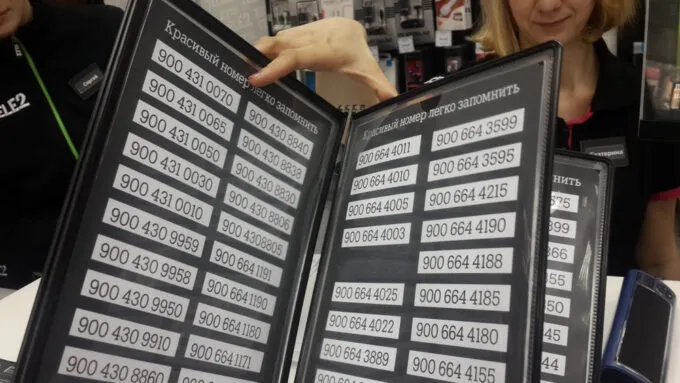 ELE2
Сергей
Красивый номер легко запомнить
900 431 0070
900 431 0065
900 431 0050
900 431 0030
900 431 0010
900 430 9959
900 430 9958
900 430 9950
900 430 9910
900 430 8860
900 430 8840
900 430 8838
900 430 8830
900 430 8806
900 4308805
900 664 1191
900 664 1190
900 664 1180
900 664 1171
Красивый номер легко запомнить
900 664 4011
900 664 4010
900 664 4005
900 664 4003
900 664 4025
900 664 4022
900 664 3889
900 664 3599
900 664 3595
900 664 4215
900 664 4190
900 664 4188
900 664 4185
900 664 4180
900 664 4155
Екатерина
мнить
575
899
866
855
45
44